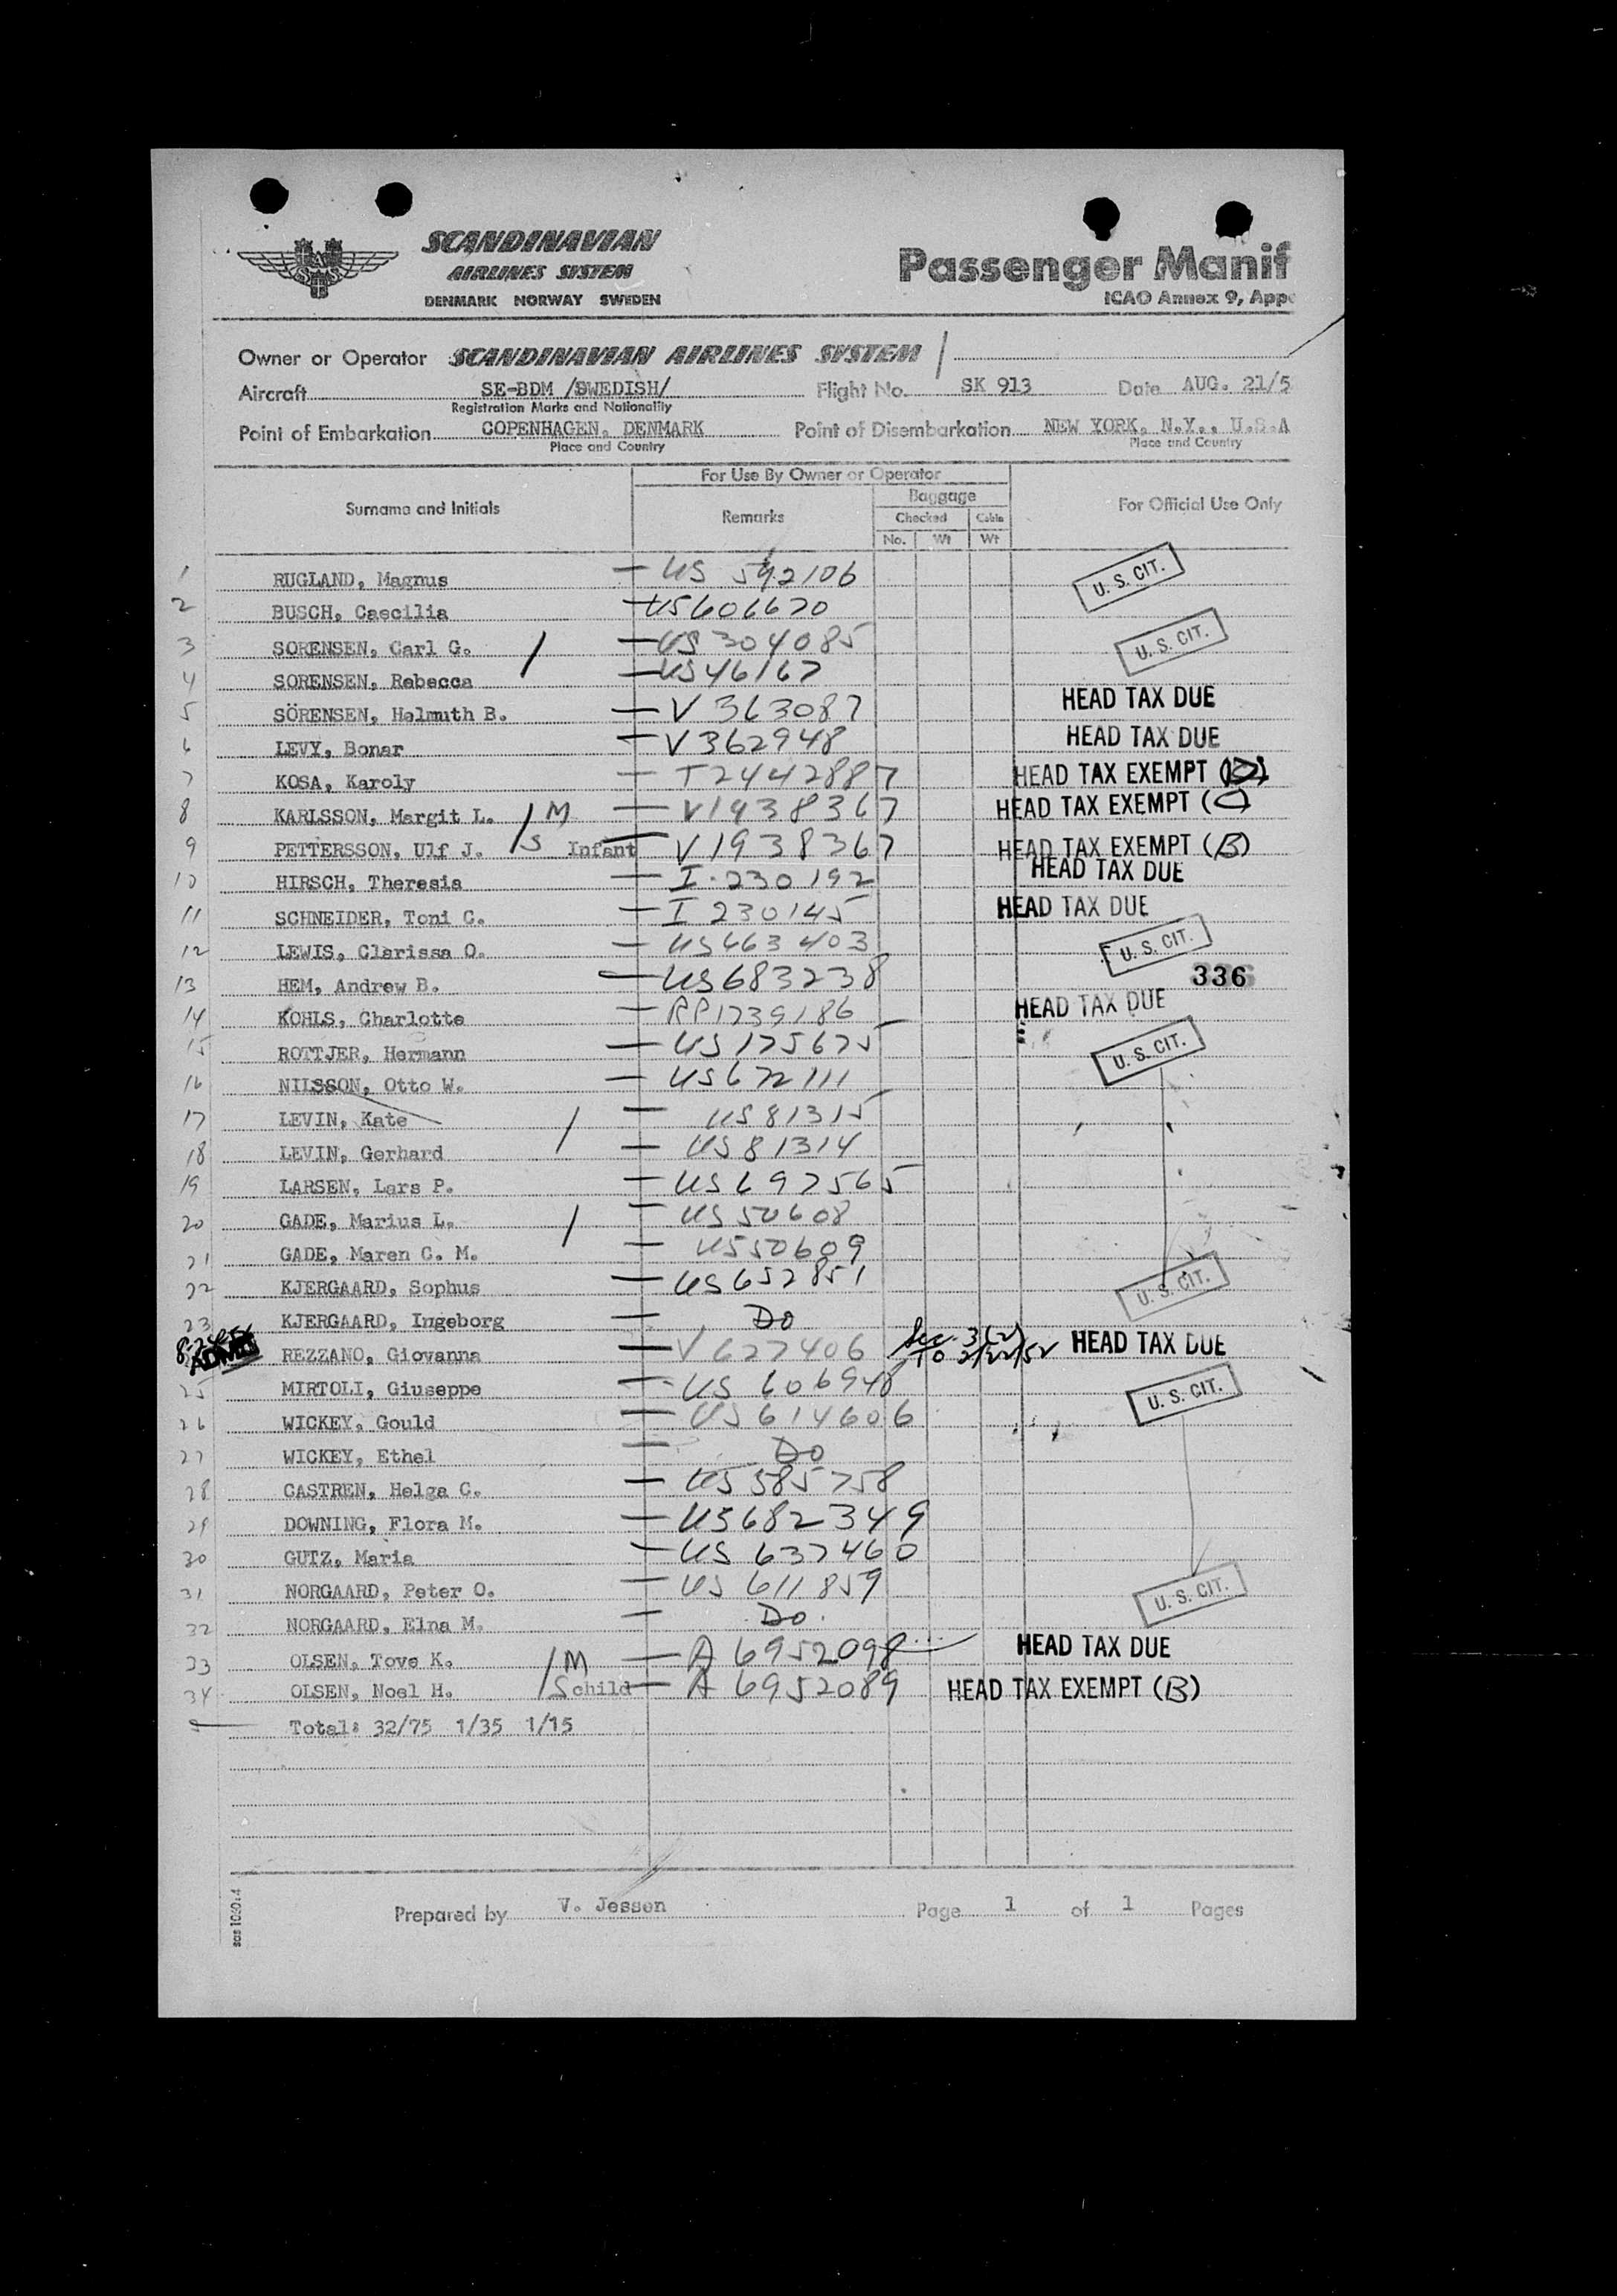 SCANDINAVIAN
AIRLINES SYSTEM
DENMARK NORWAY SWEDEN
Passenger Manif
ICAO Annex 9, Appe
Owner or Operator SCANDINAVIAN AIRLINES SYSTEM /
Aircraft SE-BDM /SWEDISH/ Flight No. SK 913 Date AUG. 21/5
Registration Marks and Nationality
Point of Embarkation COPENHAGEN, DENMARK Point of Disembarkation NEW YORK, N.Y., U.S.A
Place and Country Place and Country
For Use By Owner or Operator
Surname and Initials Remarks Baggage For Official Use Only
Checked Cabin
No. Wt Wt
1 RUGLAND, Magnus — US 592106 U. S. CIT.
2 BUSCH, Caecilia — US606620
3 SORENSEN, Carl G. / — US 304085 U. S. CIT.
4 SORENSEN, Rebecca — US46167
5 SÖRENSEN, Helmuth B. — V 363087 HEAD TAX DUE
6 LEVY, Bonar — V 362948 HEAD TAX DUE
7 KOSA, Karoly — T2442887 HEAD TAX EXEMPT
8 KARLSSON, Margit L. / M — V1938367 HEAD TAX EXEMPT (C)
9 PETTERSSON, Ulf J. / S Infant — V1938367 HEAD TAX EXEMPT (B)
10 HIRSCH, Theresia — I-230192 HEAD TAX DUE
11 SCHNEIDER, Toni C. — I 230145 HEAD TAX DUE
12 LEWIS, Clarissa O. — US463403 U. S. CIT.
13 HEM, Andrew B. — US683238 336
14 KOHLS, Charlotte — RP1739186 HEAD TAX DUE
15 ROTTJER, Hermann — US175675 U. S. CIT.
16 NILSSON, Otto W. — US672111
17 LEVIN, Kate / — US81315
18 LEVIN, Gerhard — US81314
19 LARSEN, Lars P. — US697565
20 GADE, Marius L. / — US50608
21 GADE, Maren C. M. — US50609
22 KJERGAARD, Sophus — US652851 U. S. CIT.
23 KJERGAARD, Ingeborg — Do
ADMD REZZANO, Giovanna — V627406 Sec. 3(2) TO 2/22/52 HEAD TAX DUE
25 MIRTOLI, Giuseppe — US 606940 U. S. CIT.
26 WICKEY, Gould — US614606
27 WICKEY, Ethel — Do
28 CASTREN, Helga C. — US585758
29 DOWNING, Flora M. — US682349
30 GUTZ, Maria — US 637460
31 NORGAARD, Peter O. — US 611859 U. S. CIT.
32 NORGAARD, Elna M. — Do.
33 OLSEN, Tove K. / M — A 6952098 HEAD TAX DUE
34 OLSEN, Noel H. / S child — A 6952089 HEAD TAX EXEMPT (B)
Total: 32/75 1/35 1/15
Prepared by V. Jessen Page 1 of 1 Pages